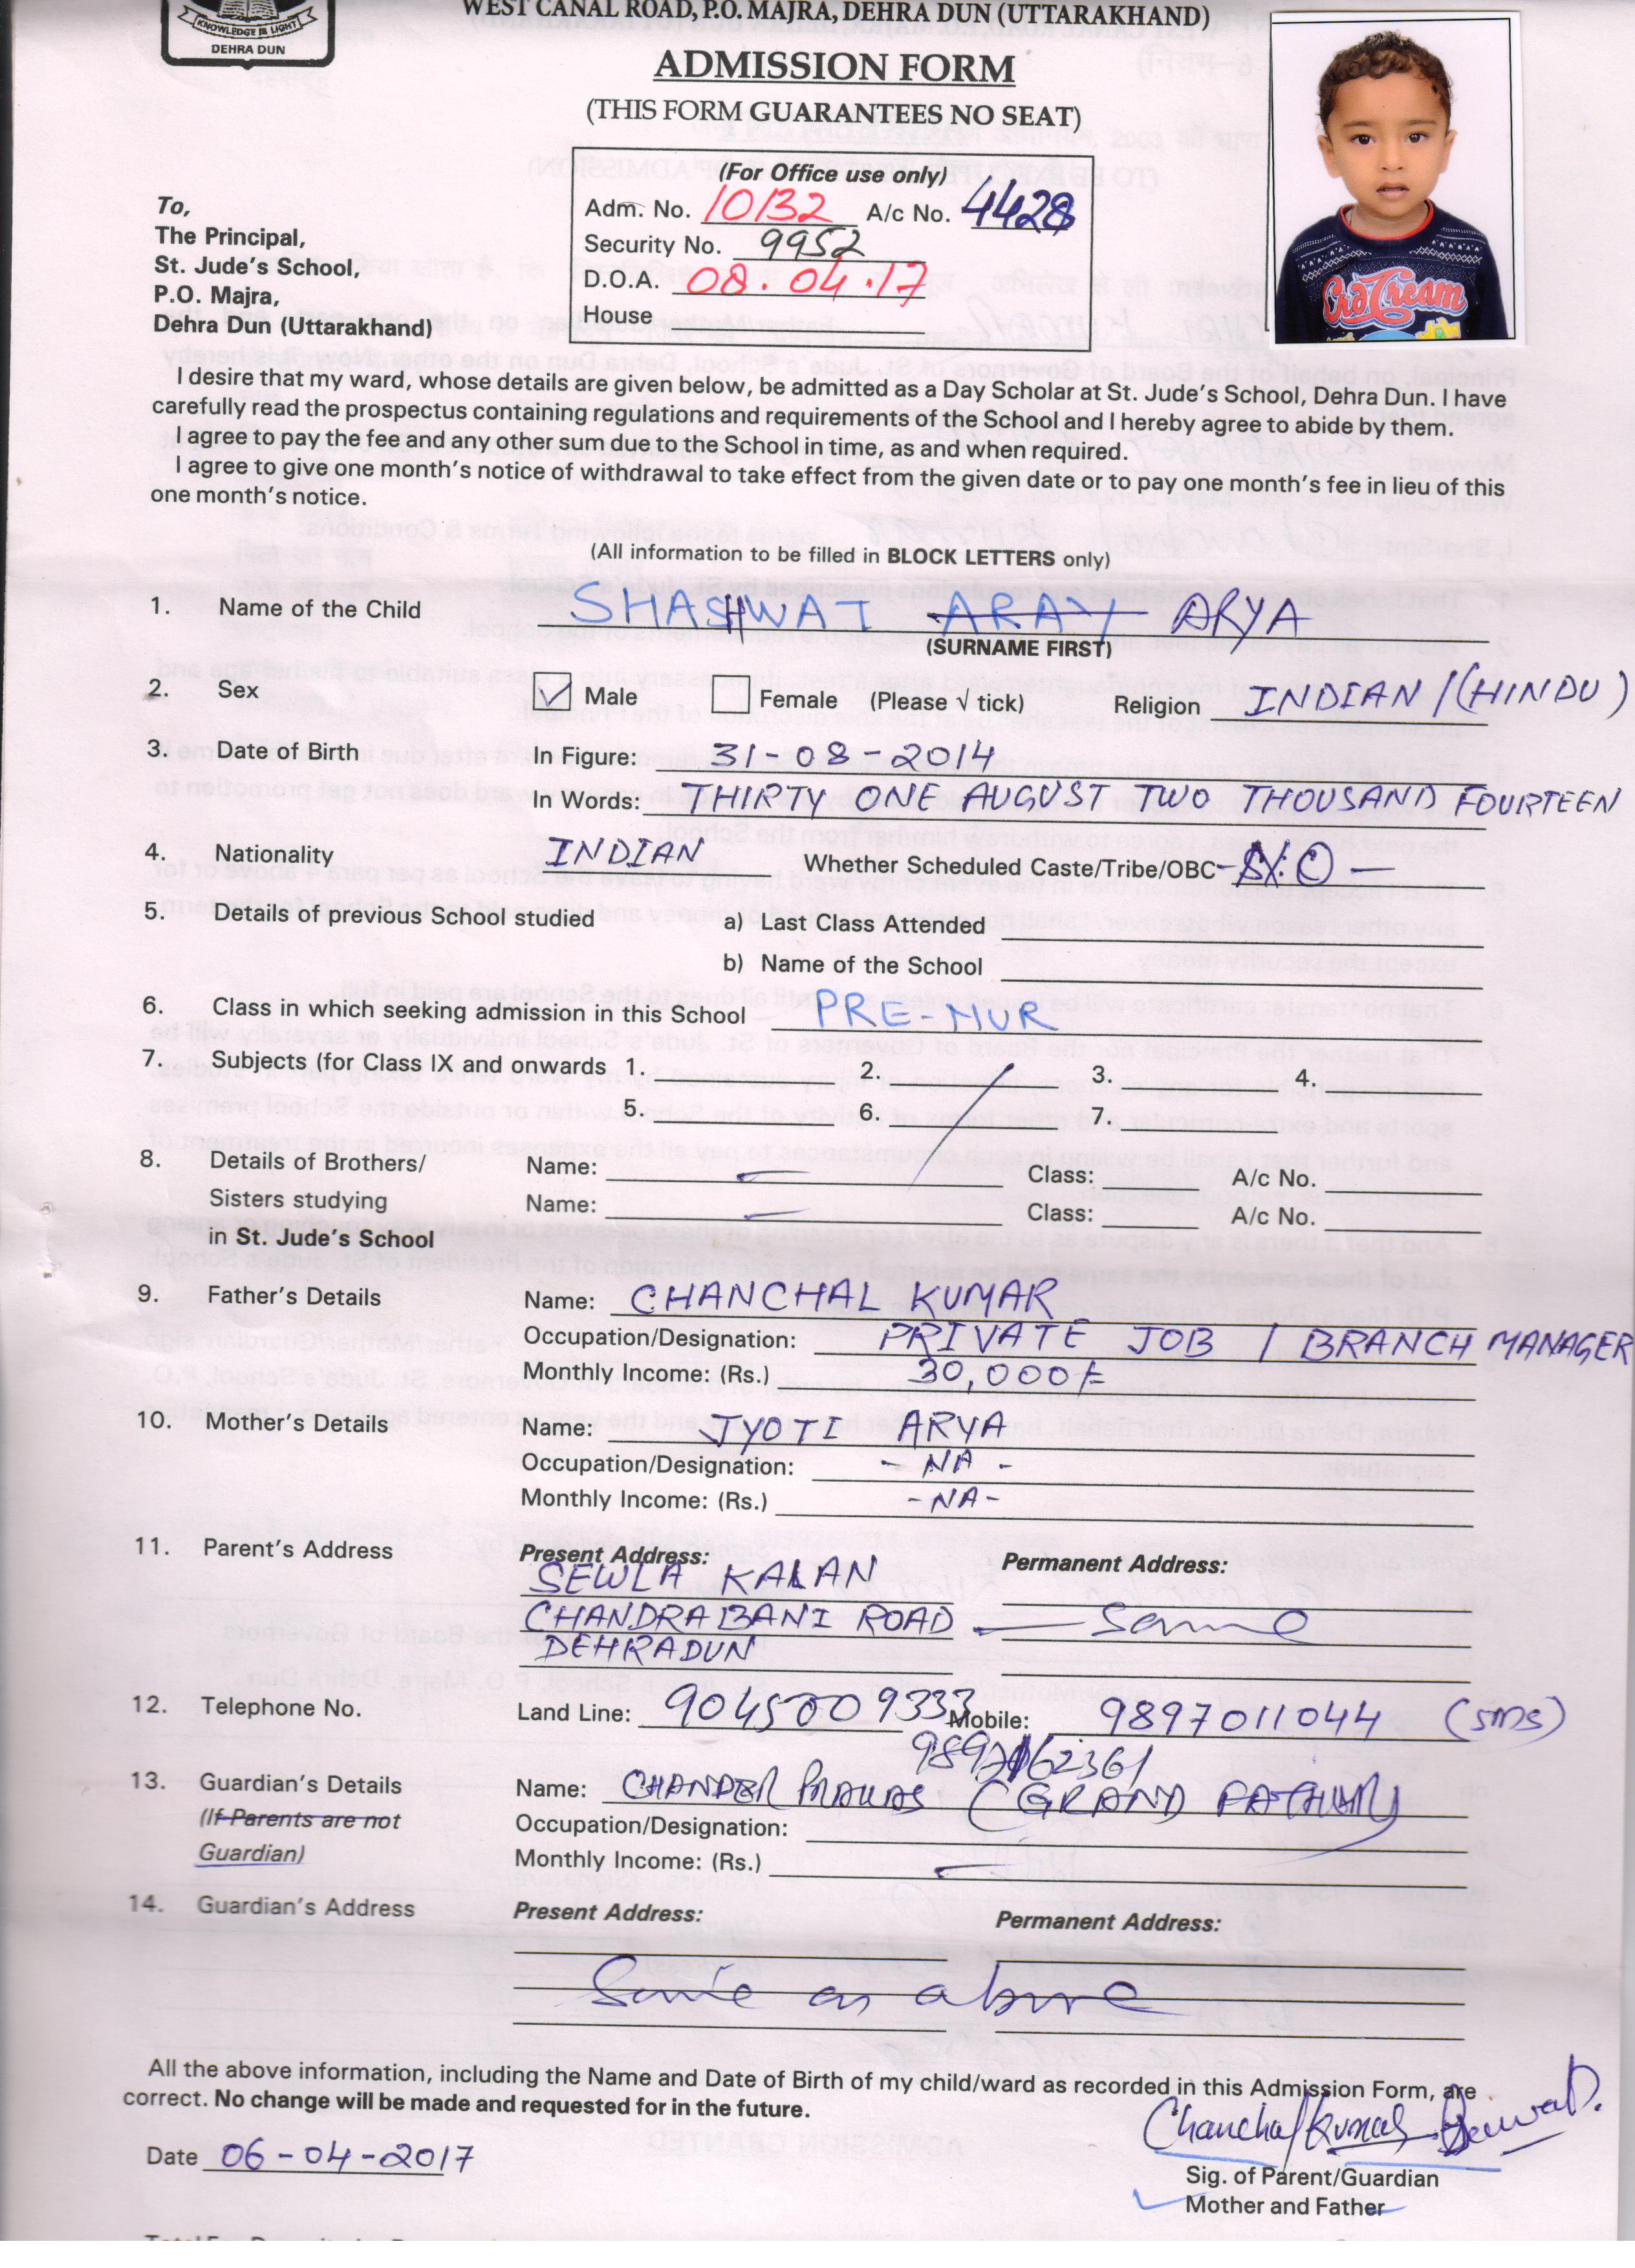 KNOWLEDGE IS LIGHT
DEHRA DUN
WEST CANAL ROAD, P.O. MAJRA, DEHRA DUN (UTTARAKHAND)
ADMISSION FORM
(THIS FORM GUARANTEES NO SEAT)
(For Office use only)
Adm. No. 10132 A/c No. 4428
Security No. 9952
D.O.A. 08.04.17
House
To,
The Principal,
St. Jude's School,
P.O. Majra,
Dehra Dun (Uttarakhand)
I desire that my ward, whose details are given below, be admitted as a Day Scholar at St. Jude's School, Dehra Dun. I have
carefully read the prospectus containing regulations and requirements of the School and I hereby agree to abide by them.
I agree to pay the fee and any other sum due to the School in time, as and when required.
I agree to give one month's notice of withdrawal to take effect from the given date or to pay one month's fee in lieu of this
one month's notice.
(All information to be filled in BLOCK LETTERS only)
1. Name of the Child SHASHWAT ARAY ARYA
(SURNAME FIRST)
2. Sex Male Female (Please √ tick) Religion INDIAN / (HINDU)
3. Date of Birth In Figure: 31-08-2014
In Words: THIRTY ONE AUGUST TWO THOUSAND FOURTEEN
4. Nationality INDIAN Whether Scheduled Caste/Tribe/OBC
5. Details of previous School studied a) Last Class Attended
b) Name of the School
6. Class in which seeking admission in this School PRE-NUR
7. Subjects (for Class IX and onwards 1. 2. 3. 4.
5. 6. 7.
8. Details of Brothers/ Name: Class: A/c No.
Sisters studying Name: Class: A/c No.
in St. Jude's School
9. Father's Details Name: CHANCHAL KUMAR
Occupation/Designation: PRIVATE JOB / BRANCH MANAGER
Monthly Income: (Rs.) 30,000/=
10. Mother's Details Name: JYOTI ARYA
Occupation/Designation: - NA -
Monthly Income: (Rs.) - NA -
11. Parent's Address Present Address: Permanent Address:
SEWLA KALAN
CHANDRABANI ROAD - same
DEHRADUN
12. Telephone No. Land Line: 9045009333 Mobile: 9897011044 (SMS)
13. Guardian's Details Name: CHANDER PRAKAS (GRAND FATHER)
(If Parents are not Occupation/Designation:
Guardian) Monthly Income: (Rs.)
14. Guardian's Address Present Address: Permanent Address:
Same as above
All the above information, including the Name and Date of Birth of my child/ward as recorded in this Admission Form, are
correct. No change will be made and requested for in the future.
Chanchal Kumar
Date 06-04-2017
Sig. of Parent/Guardian
Mother and Father